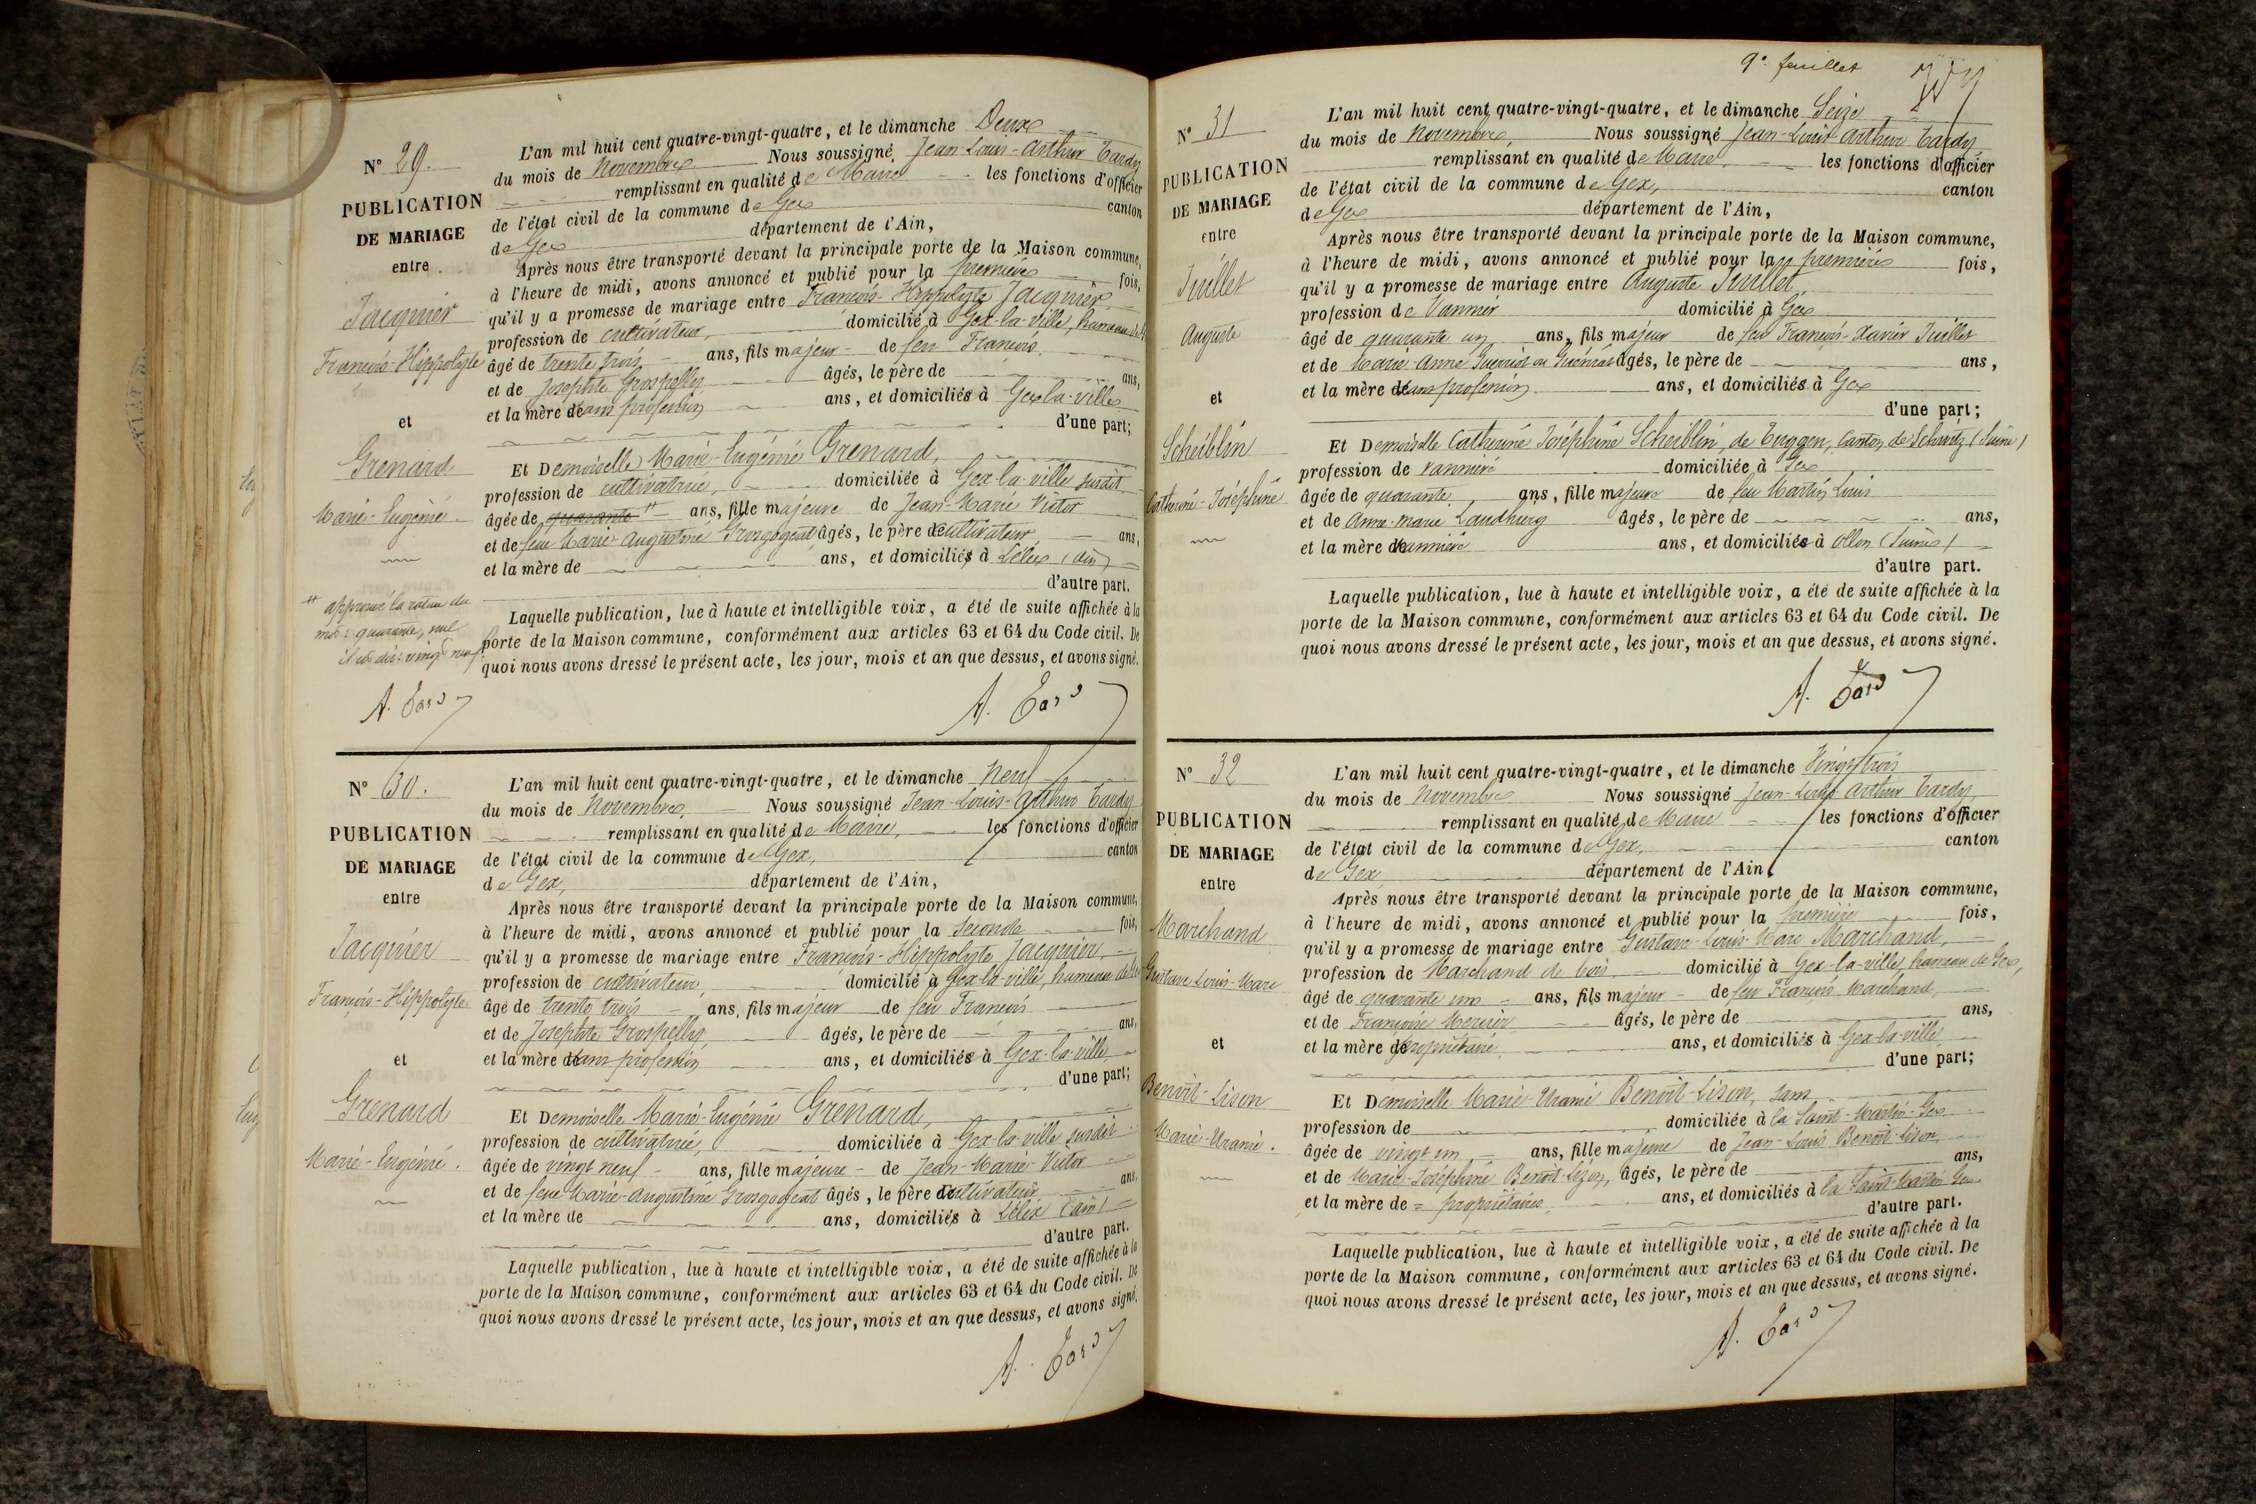 N° 29.
PUBLICATION
DE MARIAGE
entre
Jacquier
François-Hippolyte
et
Grenard
Marie-Eugénie
" approuvé la rature du
mot: quarante, nul
L'an mil huit cent quatre-vingt-quatre, et le dimanche Deux
du mois de Novembre Nous soussigné Jean-Louis-Arthur Tardy
remplissant en qualité de Maire les fonctions d'officier
de l'état civil de la commune de Gex canton
de Gex département de l'Ain,
Après nous être transporté devant la principale porte de la Maison commune,
à l'heure de midi, avons annoncé et publié pour la première fois,
qu'il y a promesse de mariage entre François-Hippolyte Jacquier
profession de cultivateur, domicilié à Gex-la-ville, hameau
âgé de trente trois ans, fils majeur de feu François,
et de Josephte Grospelly âgés, le père de ans,
et la mère de sans profession ans, et domiciliés à Gex-la-ville
d'une part;
Et Demoiselle Marie-Eugénie Grenard,
profession de cultivatrice, domiciliée à Gex-la-ville susdit
âgée de quarante " ans, fille majeure de Jean-Marie Victor
et de feue Marie-Augustine Grosgogeat âgés, le père de cultivateur ans,
et la mère de ans, et domiciliés à Lélex (Ain)
d'autre part.
Laquelle publication, lue à haute et intelligible voix, a été de suite affichée à la
porte de la Maison commune, conformément aux articles 63 et 64 du Code civil. De
quoi nous avons dressé le présent acte, les jour, mois et an que dessus, et avons signé.
A. Tardy
A. Tardy
N° 30.
PUBLICATION
DE MARIAGE
entre
Jacquier
François-Hippolyte
et
Grenard
Marie-Eugénie.
L'an mil huit cent quatre-vingt-quatre, et le dimanche Neuf
du mois de Novembre, Nous soussigné Jean-Louis-Arthur Tardy
remplissant en qualité de Maire, les fonctions d'officier
de l'état civil de la commune de Gex, canton
de Gex, département de l'Ain,
Après nous être transporté devant la principale porte de la Maison commune,
à l'heure de midi, avons annoncé et publié pour la seconde fois,
qu'il y a promesse de mariage entre François-Hippolyte Jacquier,
profession de cultivateur, domicilié à Gex-la-ville, hameau
âgé de trente trois ans, fils majeur de feu François
et de Josephte Grospelly âgés, le père de ans,
et la mère de sans profession ans, et domiciliés à Gex-la-ville
d'une part;
Et Demoiselle Marie-Eugénie Grenard,
profession de cultivatrice, domiciliée à Gex-la-ville susdit
âgée de vingt neuf ans, fille majeure de Jean-Marie Victor
et de feue Marie-Augustine Grosgogeat âgés, le père de cultivateur ans,
et la mère de ans, domiciliés à Lélex (Ain)
d'autre part.
Laquelle publication, lue à haute et intelligible voix, a été de suite affichée à la
porte de la Maison commune, conformément aux articles 63 et 64 du Code civil. De
quoi nous avons dressé le présent acte, les jour, mois et an que dessus, et avons signé.
A. Tardy
9e feuillet
N° 31
PUBLICATION
DE MARIAGE
entre
Juillet
Auguste
et
Scheiblin
Catherine-Joséphine
L'an mil huit cent quatre-vingt-quatre, et le dimanche Seize
du mois de Novembre, Nous soussigné Jean-Louis Arthur Tardy,
remplissant en qualité de Maire, les fonctions d'officier
de l'état civil de la commune de Gex, canton
de Gex département de l'Ain,
Après nous être transporté devant la principale porte de la Maison commune,
à l'heure de midi, avons annoncé et publié pour la première fois,
qu'il y a promesse de mariage entre Auguste Juillet,
profession de Vannier domicilié à Gex
âgé de quarante un ans, fils majeur de feu François-Xavier Juillet
et de Marie-Anne ou âgés, le père de ans,
et la mère de sans profession ans, et domiciliés à Gex
d'une part;
Et Demoiselle Catherine Joséphine Scheiblin, de Tuggen, Canton de Schwitz (Suisse)
profession de vannière domiciliée à Gex
âgée de quarante ans, fille majeure de feu Martin Louis
et de Anne-Marie Landhurg âgés, le père de ans,
et la mère de vannière ans, et domiciliés à Ollon (Suisse)
d'autre part.
Laquelle publication, lue à haute et intelligible voix, a été de suite affichée à la
porte de la Maison commune, conformément aux articles 63 et 64 du Code civil. De
quoi nous avons dressé le présent acte, les jour, mois et an que dessus, et avons signé.
A. Tardy
N° 32
PUBLICATION
DE MARIAGE
entre
Marchand
Gustave Louis-Marc
et
Benoit-Lison
Marie-Uranie.
L'an mil huit cent quatre-vingt-quatre, et le dimanche Vingt trois
du mois de Novembre Nous soussigné Jean-Louis Arthur Tardy,
remplissant en qualité de Maire les fonctions d'officier
de l'état civil de la commune de Gex, canton
de Gex département de l'Ain,
Après nous être transporté devant la principale porte de la Maison commune,
à l'heure de midi, avons annoncé et publié pour la première fois,
qu'il y a promesse de mariage entre Gustave-Louis-Marc Marchand,
profession de Marchand de bois, domicilié à Gex-la-ville, hameau de Gex,
âgé de quarante un ans, fils majeur de feu François Marchand,
et de Françoise Mercier âgés, le père de ans,
et la mère de propriétaire, ans, et domiciliés à Gex-la-ville
d'une part;
Et Demoiselle Marie-Uranie Benoit-Lison, sans
profession de domiciliée à la Saint-Martin-Gex
âgée de vingt un ans, fille majeure de Jean-Louis Benoit-Lison,
et de Marie-Joséphine Benoit-Lizon, âgés, le père de ans,
et la mère de = propriétaires, ans, et domiciliés à la Saint-Martin Gex
d'autre part.
Laquelle publication, lue à haute et intelligible voix, a été de suite affichée à la
porte de la Maison commune, conformément aux articles 63 et 64 du Code civil. De
quoi nous avons dressé le présent acte, les jour, mois et an que dessus, et avons signé.
A. Tardy